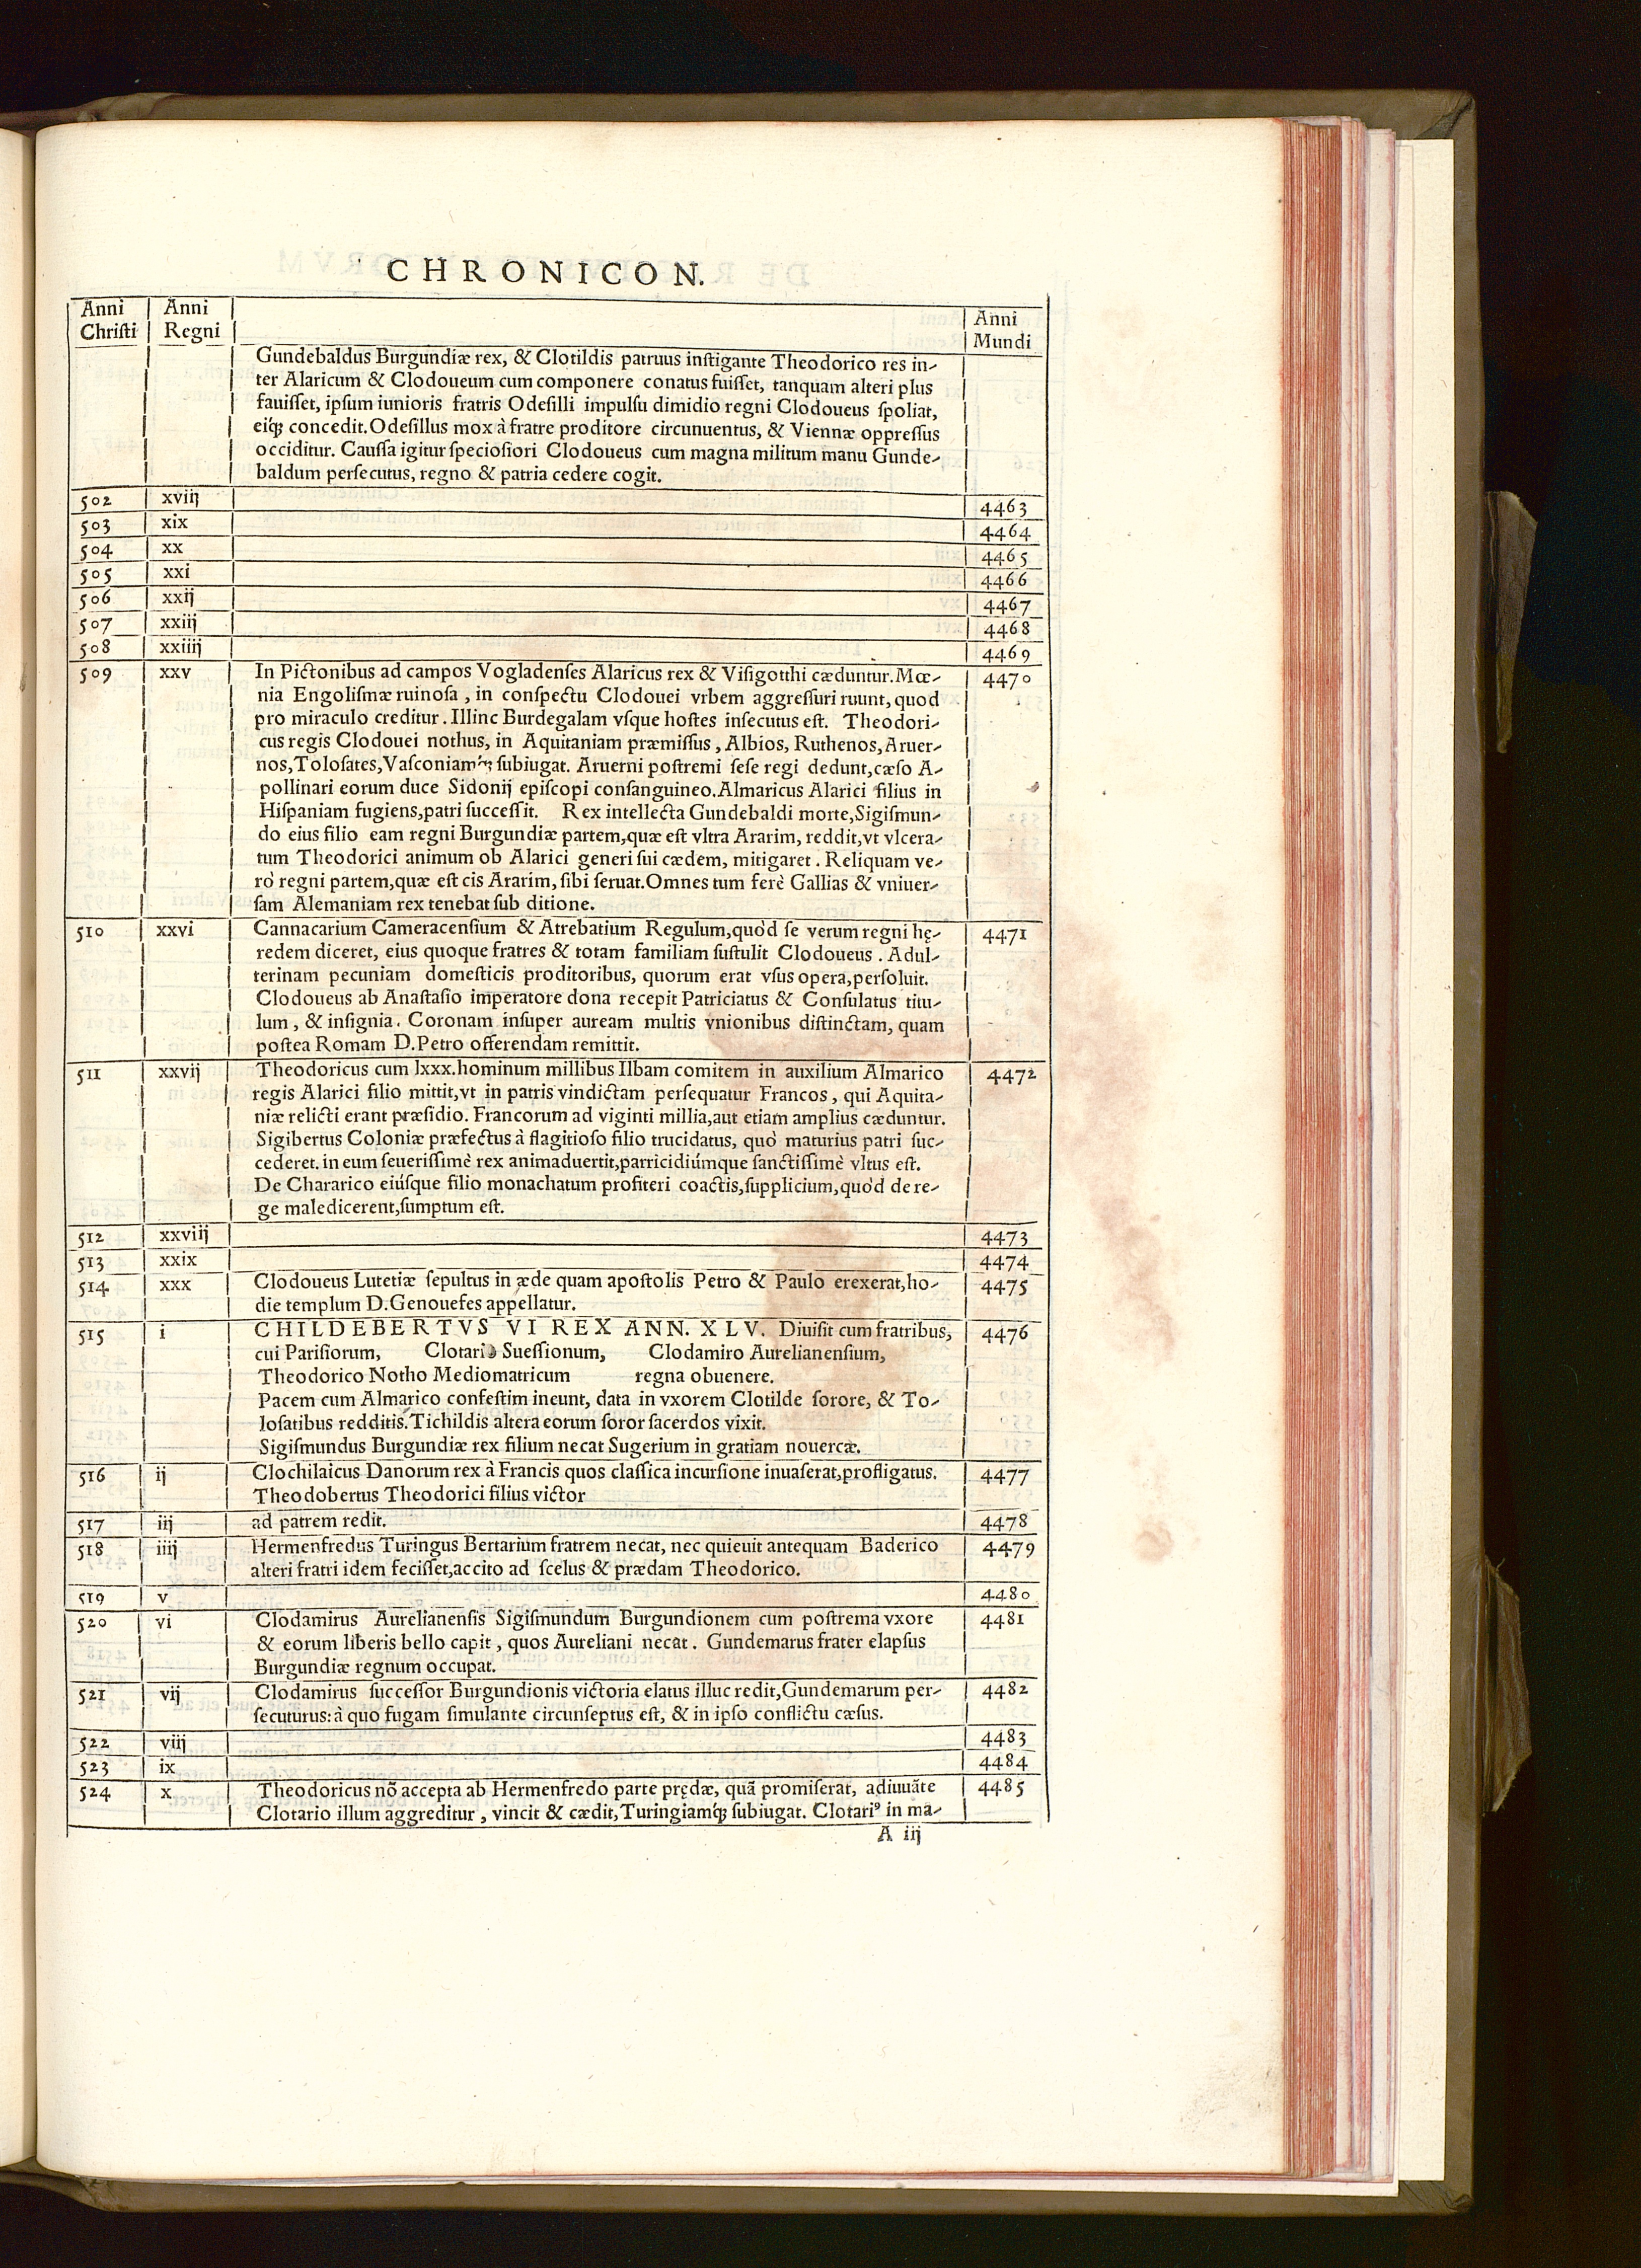 CHRONICON.
Anni Anni Anni
Christi Regni Mundi
Gundebaldus Burgundiæ rex, & Clotildis patruus instigante Theodorico res in-
ter Alaricum & Clodoueum cum componere conatus fuisset, tanquam alteri plus
fauisset, ipsum iunioris fratris Odesilli impulsu dimidio regni Clodoueus spoliat,
eiq́ꝫ concedit. Odesillus mox à fratre proditore circunuentus, & Viennæ oppressus
occiditur. Caussa igitur speciosiori Clodoueus cum magna militum manu Gunde-
baldum persecutus, regno & patria cedere cogit.
502 xviij 4463
503 xix 4464
504 xx 4465
505 xxi 4466
506 xxij 4467
507 xxiij 4468
508 xxiiij 4469
509 xxv In Pictonibus ad campos Vogladenses Alaricus rex & Visigotthi cæduntur. Mœ- 4470
nia Engolismæ ruinosa, in conspectu Clodouei vrbem aggressuri ruunt, quod
pro miraculo creditur. Illinc Burdegalam vsque hostes insecutus est. Theodori-
cus regis Clodouei nothus, in Aquitaniam præmissus, Albios, Ruthenos, Aruer-
nos, Tolosates, Vasconiamq́ꝫ subiugat. Aruerni postremi sese regi dedunt, cæso A-
pollinari eorum duce Sidonij episcopi consanguineo. Almaricus Alarici filius in
Hispaniam fugiens, patri successit. Rex intellecta Gundebaldi morte, Sigismun-
do eius filio eam regni Burgundiæ partem, quæ est vltra Ararim, reddit, vt vlcera-
tum Theodorici animum ob Alarici generi sui cædem, mitigaret. Reliquam ve-
rò regni partem, quæ est cis Ararim, sibi seruat. Omnes tum ferè Gallias & vniuer-
sam Alemaniam rex tenebat sub ditione.
510 xxvi Cannacarium Cameracensium & Atrebatium Regulum, quòd se verum regni hę- 4471
redem diceret, eius quoque fratres & totam familiam sustulit Clodoueus. Adul-
terinam pecuniam domesticis proditoribus, quorum erat vsus opera, persoluit.
Clodoueus ab Anastasio imperatore dona recepit Patriciatus & Consulatus titu-
lum, & insignia. Coronam insuper auream multis vnionibus distinctam, quam
postea Romam D. Petro offerendam remittit.
511 xxvij Theodoricus cum lxxx. hominum millibus Ilbam comitem in auxilium Almarico 4472
regis Alarici filio mittit, vt in patris vindictam persequatur Francos, qui Aquita-
niæ relicti erant præsidio. Francorum ad viginti millia, aut etiam amplius cæduntur.
Sigibertus Coloniæ præfectus à flagitioso filio trucidatus, quò maturius patri suc-
cederet. in eum seuerissimè rex animaduertit, parricidiúmque sanctissimè vltus est.
De Chararico eiúsque filio monachatum profiteri coactis, supplicium, quòd de re-
ge maledicerent, sumptum est.
512 xxviij 4473
513 xxix 4474
514 xxx Clodoueus Lutetiæ sepultus in æde quam apostolis Petro & Paulo erexerat, ho- 4475
die templum D. Genouefes appellatur.
515 i CHILDEBERTVS VI REX ANN. XLV. Diuisit cum fratribus, 4476
cui Parisiorum, Clotario Suessionum, Clodamiro Aurelianensium,
Theodorico Notho Mediomatricum regna obuenere.
Pacem cum Almarico confestim ineunt, data in vxorem Clotilde sorore, & To-
losatibus redditis. Tichildis altera eorum soror sacerdos vixit.
Sigismundus Burgundiæ rex filium necat Sugerium in gratiam nouercæ.
516 ij Clochilaicus Danorum rex à Francis quos classica incursione inuaserat, profligatus. 4477
Theodobertus Theodorici filius victor
517 iij ad patrem redit. 4478
518 iiij Hermenfredus Turingus Bertarium fratrem necat, nec quieuit antequam Baderico 4479
alteri fratri idem fecisset, accito ad scelus & prædam Theodorico.
519 v 4480
520 vi Clodamirus Aurelianensis Sigismundum Burgundionem cum postrema vxore 4481
& eorum liberis bello capit, quos Aureliani necat. Gundemarus frater elapsus
Burgundiæ regnum occupat.
521 vij Clodamirus successor Burgundionis victoria elatus illuc redit, Gundemarum per- 4482
secuturus: à quo fugam simulante circunseptus est, & in ipso conflictu cæsus.
522 viij 4483
523 ix 4484
524 x Theodoricus nõ accepta ab Hermenfredo parte prędæ, quã promiserat, adiuuãte 4485
Clotario illum aggreditur, vincit & cædit, Turingiamq́ꝫ subiugat. Clotariꝰ in ma-
A iij